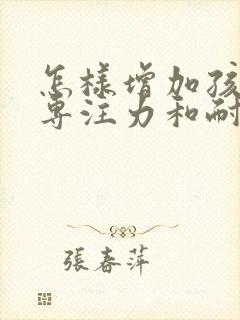 怎樣增加孩
專注力和耐
張春萍